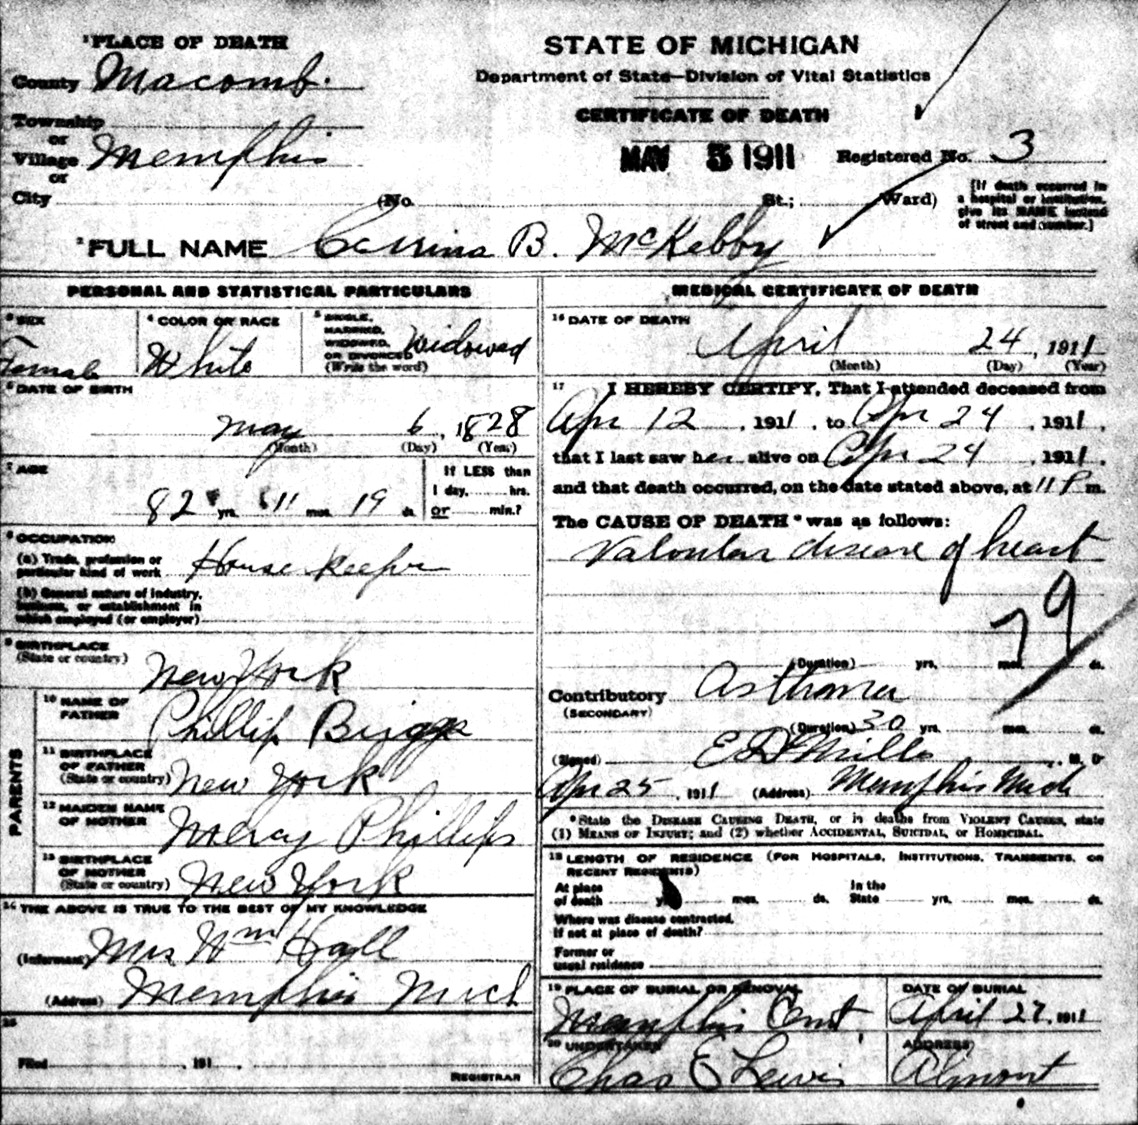 1 PLACE OF DEATH
County Macomb.
Township
or
Village Memphis
or
City (No. St.; Ward)
STATE OF MICHIGAN
Department of State—Division of Vital Statistics
CERTIFICATE OF DEATH
MAY 5 1911 Registered No. 3
[If death occurred in
a hospital or institution,
give its NAME instead
of street and number.]
2 FULL NAME B. McKebby
PERSONAL AND STATISTICAL PARTICULARS
3 SEX
Female
4 COLOR OR RACE
White
5 SINGLE,
MARRIED,
WIDOWED,
OR DIVORCED
(Write the word)
Widowed
6 DATE OF BIRTH
May 6, 1828
(Month) (Day) (Year)
7 AGE
82 yrs. 11 mos. 19 ds.
If LESS than
1 day, hrs.
or min.?
8 OCCUPATION
(a) Trade, profession or
particular kind of work House Keeper
(b) General nature of industry,
business, or establishment in
which employed (or employer)
9 BIRTHPLACE
(State or country)
New York
PARENTS
10 NAME OF
FATHER
Phillip Briggs
11 BIRTHPLACE
OF FATHER
(State or country)
New York
12 MAIDEN NAME
OF MOTHER
Mercy Phillips
13 BIRTHPLACE
OF MOTHER
(State or country)
New York
14 THE ABOVE IS TRUE TO THE BEST OF MY KNOWLEDGE
(Informant) Mrs Wm Hall
(Address) Memphis Mich
15
Filed , 191
REGISTRAR
MEDICAL CERTIFICATE OF DEATH
16 DATE OF DEATH
April 24, 1911
(Month) (Day) (Year)
17 I HEREBY CERTIFY, That I attended deceased from
Apr 12, 1911, to Apr 24, 1911,
that I last saw her alive on Apr 24, 1911,
and that death occurred, on the date stated above, at 11 P m.
The CAUSE OF DEATH * was as follows:
Valvular disease of heart
79
(Duration) yrs. mos. ds.
Contributory Asthma
(SECONDARY)
(Duration) 30 yrs. mos. ds.
(Signed) Mills M. D
Apr 25, 1911 (Address) Memphis Mich
*State the DISEASE CAUSING DEATH, or in deaths from VIOLENT CAUSES, state
(1) MEANS OF INJURY; and (2) whether ACCIDENTAL, SUICIDAL, or HOMICIDAL.
18 LENGTH OF RESIDENCE (FOR HOSPITALS, INSTITUTIONS, TRANSIENTS, OR
RECENT RESIDENTS)
At place
of death yrs. mos. ds.
In the
State yrs. mos. ds.
Where was disease contracted.
If not at place of death?
Former or
usual residence
19 PLACE OF BURIAL OR REMOVAL
Memphis Cemt
DATE OF BURIAL
April 27, 1911
20 UNDERTAKER
Chas E Lewis
ADDRESS
Almont